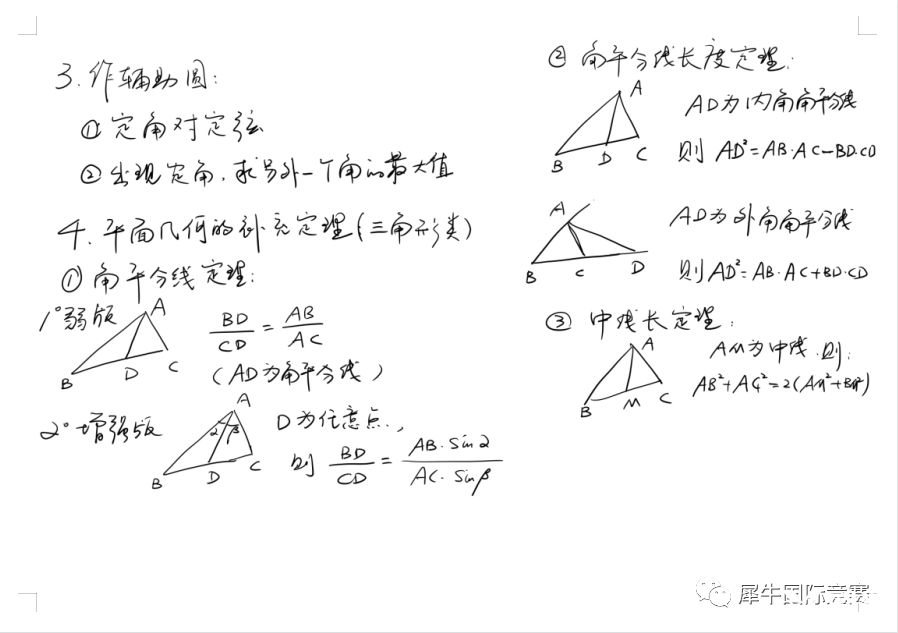 3.作辅助圆:
① 定角对定弦
② 出现定角,求另外一个角的最大值
4.平面几何的补充定理(三角形类)
① 角平分线定理:
1° 弱版
A
B
D
C
BD/CD = AB/AC
(AD为角平分线)
2° 增强版
A
α β
B
D
C
D为任意点,
则 BD/CD = AB·sinα/AC·sinβ
② 角平分线长度定理:
A
B
D
C
AD为内角角平分线
则 AD²=AB·AC-BD·CD
A
B
C
D
AD为外角角平分线
则 AD²=AB·AC+BD·CD
③ 中线长定理:
A
B
M
C
AM为中线,则:
AB²+AC²=2(AM²+BM²)
犀牛国际竞赛